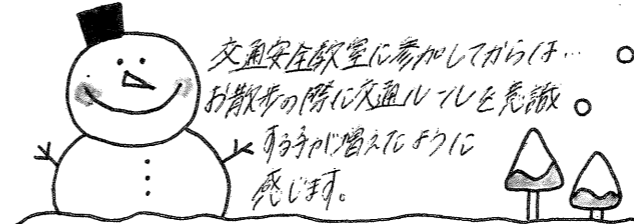 交通安全教室に参加してからは…
お散歩の際に交通ルールを意識
する子が増えたように
感じます。